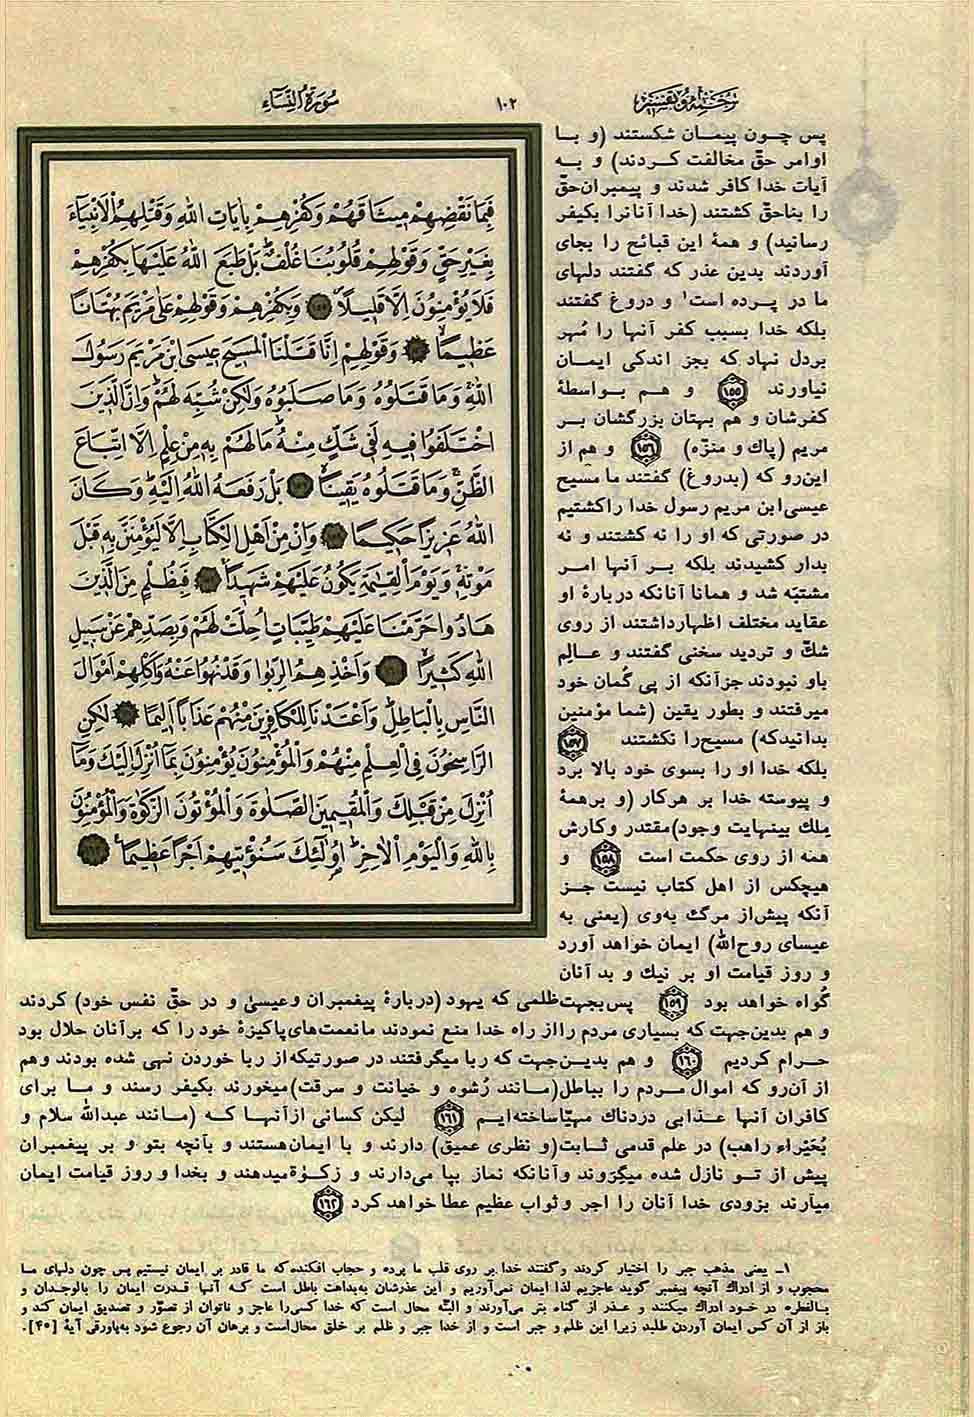 ترجمه و تفسیر
۱۰۲
سورة النساء
فَبِمَا نَقْضِهِمْ مِيثَاقَهُمْ وَكُفْرِهِمْ بِآيَاتِ اللهِ وَقَتْلِهِمُ الْأَنْبِيَاءَ
بِغَيْرِ حَقٍّ وَقَوْلِهِمْ قُلُوبُنَا غُلْفٌ بَلْ طَبَعَ اللهُ عَلَيْهَا بِكُفْرِهِمْ
فَلَا يُؤْمِنُونَ إِلَّا قَلِيلًا ۱۵۵ وَبِكُفْرِهِمْ وَقَوْلِهِمْ عَلَى مَرْيَمَ بُهْتَانًا
عَظِيمًا ۱۵۶ وَقَوْلِهِمْ إِنَّا قَتَلْنَا الْمَسِيحَ عِيسَى ابْنَ مَرْيَمَ رَسُولَ
اللهِ وَمَا قَتَلُوهُ وَمَا صَلَبُوهُ وَلَكِنْ شُبِّهَ لَهُمْ وَإِنَّ الَّذِينَ
اخْتَلَفُوا فِيهِ لَفِي شَكٍّ مِنْهُ مَا لَهُمْ بِهِ مِنْ عِلْمٍ إِلَّا اتِّبَاعَ
الظَّنِّ وَمَا قَتَلُوهُ يَقِينًا ۱۵۷ بَلْ رَفَعَهُ اللهُ إِلَيْهِ وَكَانَ
اللهُ عَزِيزًا حَكِيمًا ۱۵۸ وَإِنْ مِنْ أَهْلِ الْكِتَابِ إِلَّا لَيُؤْمِنَنَّ بِهِ قَبْلَ
مَوْتِهِ وَيَوْمَ الْقِيٰمَةِ يَكُونُ عَلَيْهِمْ شَهِيدًا ۱۵۹ فَبِظُلْمٍ مِنَ الَّذِينَ
هَادُوا حَرَّمْنَا عَلَيْهِمْ طَيِّبَاتٍ أُحِلَّتْ لَهُمْ وَبِصَدِّهِمْ عَنْ سَبِيلِ
اللهِ كَثِيرًا ۱۶۰ وَأَخْذِهِمُ الرِّبَوا وَقَدْ نُهُوا عَنْهُ وَأَكْلِهِمْ أَمْوَالَ
النَّاسِ بِالْبَاطِلِ وَأَعْتَدْنَا لِلْكَافِرِينَ مِنْهُمْ عَذَابًا أَلِيمًا ۱۶۱ لَكِنِ
الرَّاسِخُونَ فِي الْعِلْمِ مِنْهُمْ وَالْمُؤْمِنُونَ يُؤْمِنُونَ بِمَا أُنْزِلَ إِلَيْكَ وَمَا
أُنْزِلَ مِنْ قَبْلِكَ وَالْمُقِيمِينَ الصَّلٰوةَ وَالْمُؤْتُونَ الزَّكٰوةَ وَالْمُؤْمِنُونَ
بِاللهِ وَالْيَوْمِ الْآخِرِ أُولَٰئِكَ سَنُؤْتِيهِمْ أَجْرًا عَظِيمًا ۱۶۲
پس چون پیمان شکستند (و با
اوامر حقّ مخالفت کردند) و به
آیات خدا کافر شدند و پیمبران حقّ
را بناحقّ کشتند (خدا آنانرا بکیفر
رسانید) و همهٔ این قبائح را بجای
آوردند بدین عذر که گفتند دلهای
ما در پرده است۱ و دروغ گفتند
بلکه خدا بسبب کفر آنها را مُهر
بردل نهاد که بجز اندکی ایمان
نیاورند ۱۵۵ و هم بواسطهٔ
کفرشان و هم بهتان بزرگشان بر
مریم (پاك و منزّه) ۱۵۶ و هم از
این‌رو که (بدروغ) گفتند ما مسیح
عیسی‌ابن مریم رسول خدا را کشتیم
در صورتی که او را نه کشتند و نه
بدار کشیدند بلکه بر آنها امر
مشتبَه شد و همانا آنانکه دربارهٔ او
عقاید مختلف اظهارداشتند از روی
شكّ و تردید سخنی گفتند و عالِم
باو نبودند جزآنکه از پی گُمان خود
میرفتند و بطور یقین (شما مؤمنین
بدانیدکه) مسیح‌را نکشتند ۱۵۷
بلکه خدا او را بسوی خود بالا برد
و پیوسته خدا بر هرکار (و برهمهٔ
مِلك بینهایت وجود)مقتدر وکارش
همه از روی حکمت است ۱۵۸ و
هیچکس از اهل کتاب نیست جز
آنکه پیش‌از مرگ به‌وی (یعنی به
عیسای روح‌الله) ایمان خواهد آورد
و روز قیامت او بر نیك و بد آنان
گواه خواهد بود ۱۵۹ پس‌بجهت‌ظلمی که یهود (دربارهٔ پیغمبران وعیسی و در حقّ نفس خود) کردند
و هم بدین‌جهت که بسیاری مردم را از راه خدا منع نمودند مانعمت‌های‌پاکیزهٔ خود را که برآنان حلال بود
حرام کردیم ۱۶۰ و هم بدین‌جهت که ربا میگرفتند در صورتیکه‌از ربا خوردن نهی شده بودند وهم
از آن‌رو که اموال مردم را بباطل(مانند رُشوه و خیانت و سرقت)میخورند بکیفر رسند و ما برای
کافران آنها عذابی دردناك مهیّاساخته‌ایم ۱۶۱ لیکن کسانی ازآنها که (مانند عبدالله سلام و
بُحَیْراء راهب) در علم قدمی ثابت(و نظری عمیق) دارند و با ایمان‌هستند و بآنچه بتو و بر پیغمبران
پیش از تو نازل شده میگروند وآنانکه نماز بپا می‌دارند و زکوٰة‌میدهند و بخدا و روز قیامت ایمان
میآرند بزودی خدا آنان را اجر و ثواب عظیم عطا خواهد کرد ۱۶۲
۱ـ یعنی مذهب جبر را اختیار کردند وگفتند خدا بر روی قلب ما پرده و حجاب افکنده‌که ما قادر بر ایمان نیستیم پس چون دلهای ما
محجوب و از ادراك آنچه پیغمبر گوید عاجزیم لذا ایمان نمی‌آوریم و این عذرشان به‌بداهت باطل است که آنها قدرت ایمان را بالوجدان و
بالفطره در خود ادراك میکنند و عذر از گناه بتر می‌آورند و البتّه محال است که خدا کسی‌را عاجز و ناتوان از تصوّر و تصدیق ایمان کند و
باز از آن کس ایمان آوردن طلبد زیرا این ظلم و جبر است و از خدا جبر و ظلم بر خلق محال‌است و برهان آن رجوع شود به‌پاورقی آیهٔ [۴۰].